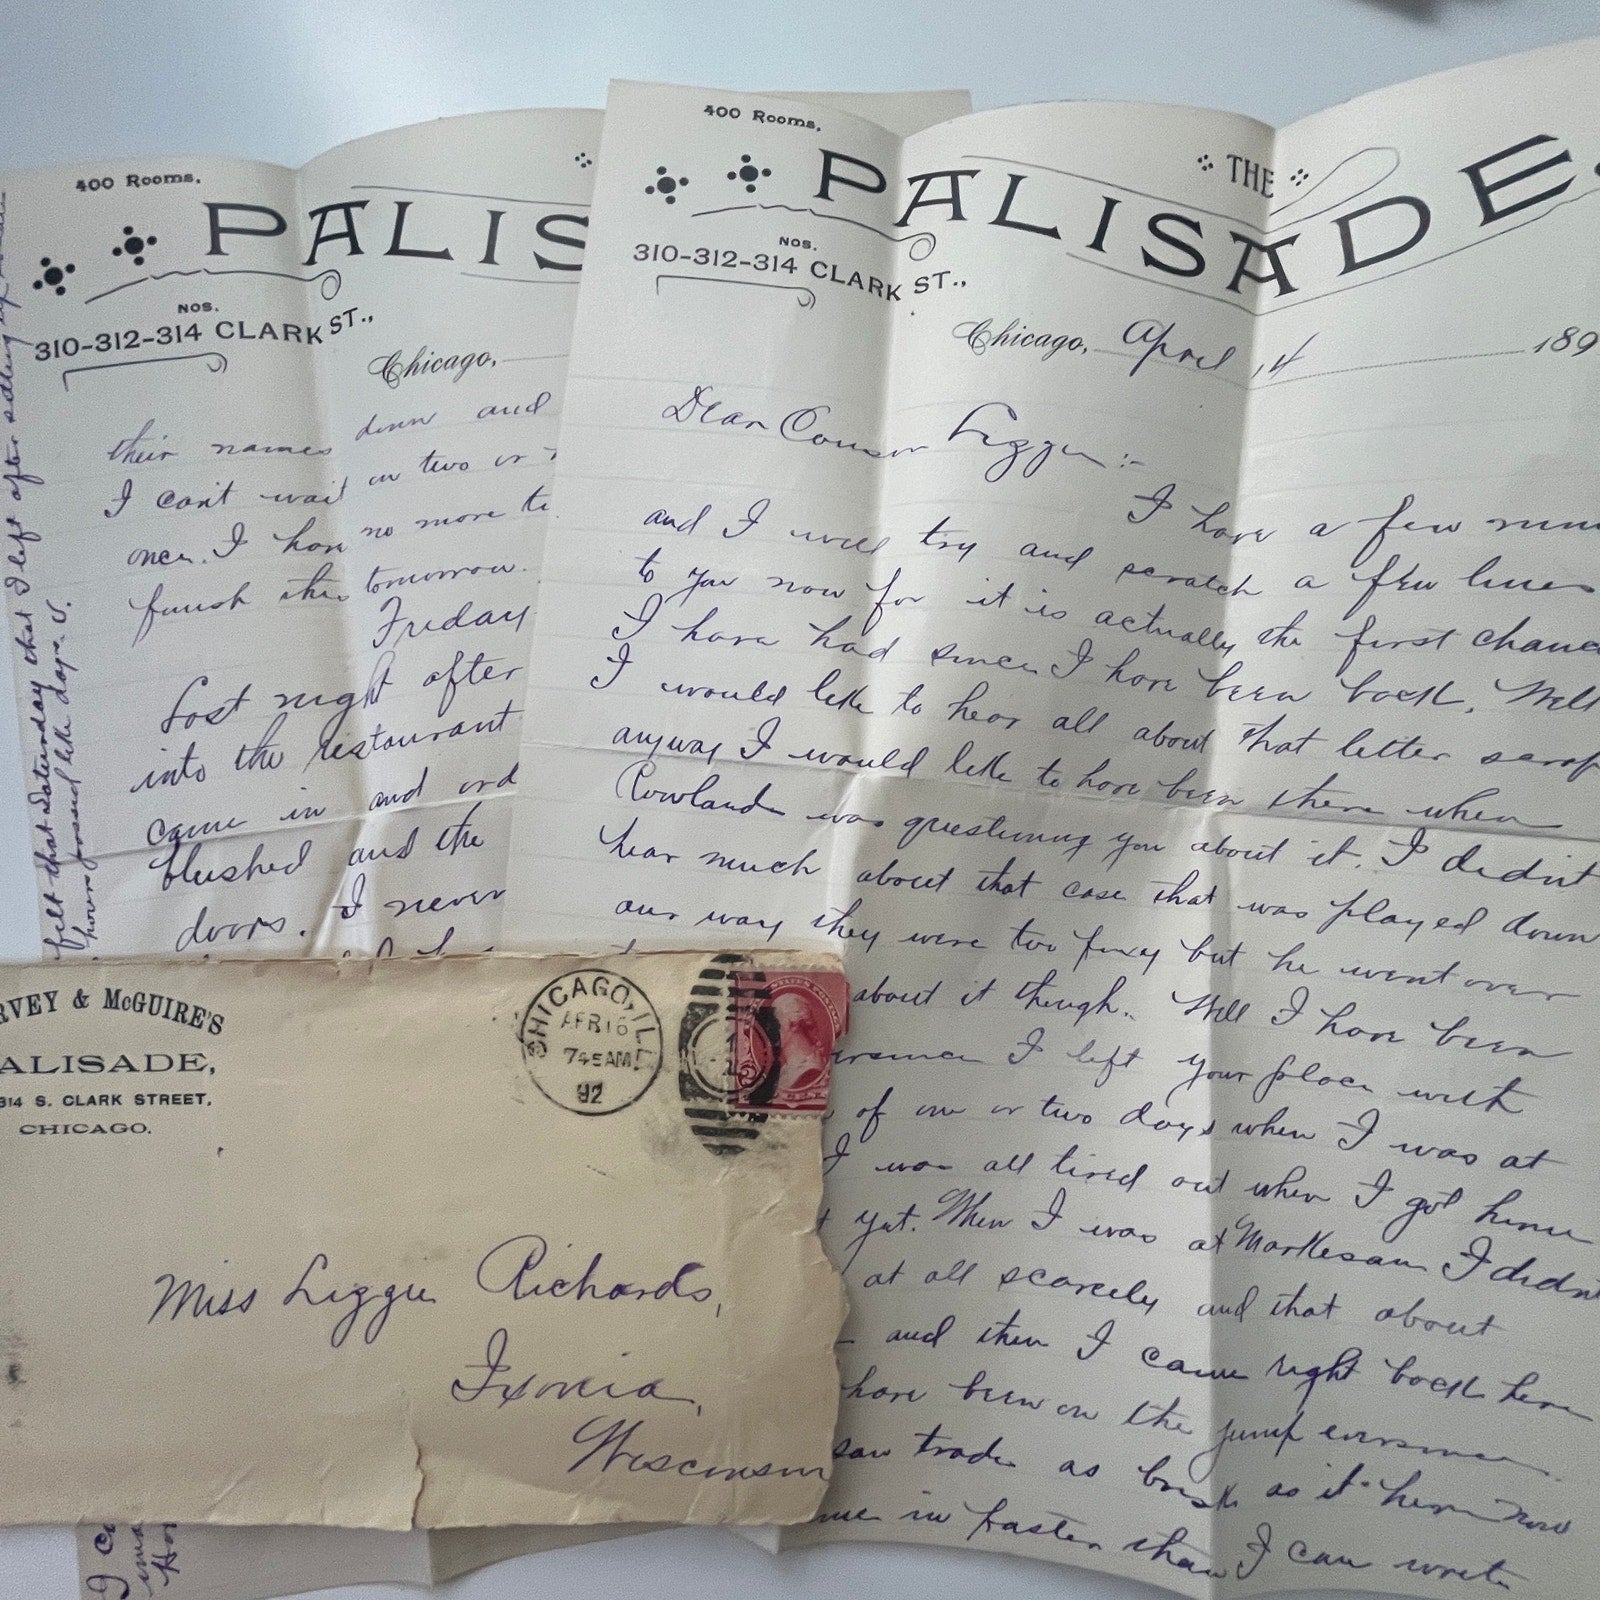 400 Rooms.
PALIS
NOS.
310-312-314 CLARK ST.,
Chicago,
their names down and
I can't wait on two or
once. I have no more
finish this tomorrow.
Friday
Last night after
into the restaurant
came in and
blushed and the
doors. I never
felt that Saturday that I left after
have passed like days.
400 Rooms.
THE
PALISADE
NOS.
310-312-314 CLARK ST.,
Chicago, April 14 189
Dear Cousin Lizzie:-
I have a few
and I will try and scratch a few lines
to you now for it is actually the first
I have had since I have been back. Well
I would like to hear all about that letter
anyway I would like to have been there when
Rowland was questioning you about it. I didn't
hear much about that case that was played down
our way they were too foxy but he went over
about it though. Well I have been
eversince I left your place with
of one or two days when I was at
I was all tired out when I got home
yet. When I was at Markesan I didn't
at all scarcely and that about
and then I came right back here
have been on the jump eversince.
saw trade as brisk as it is here now
in faster than I can write
RVEY & McGUIRE'S
ALISADE,
314 S. CLARK STREET,
CHICAGO.
CHICAGO, ILL.
APR 16
745 AM
92
Miss Lizzie Richards,
Ixonia,
Wisconsin